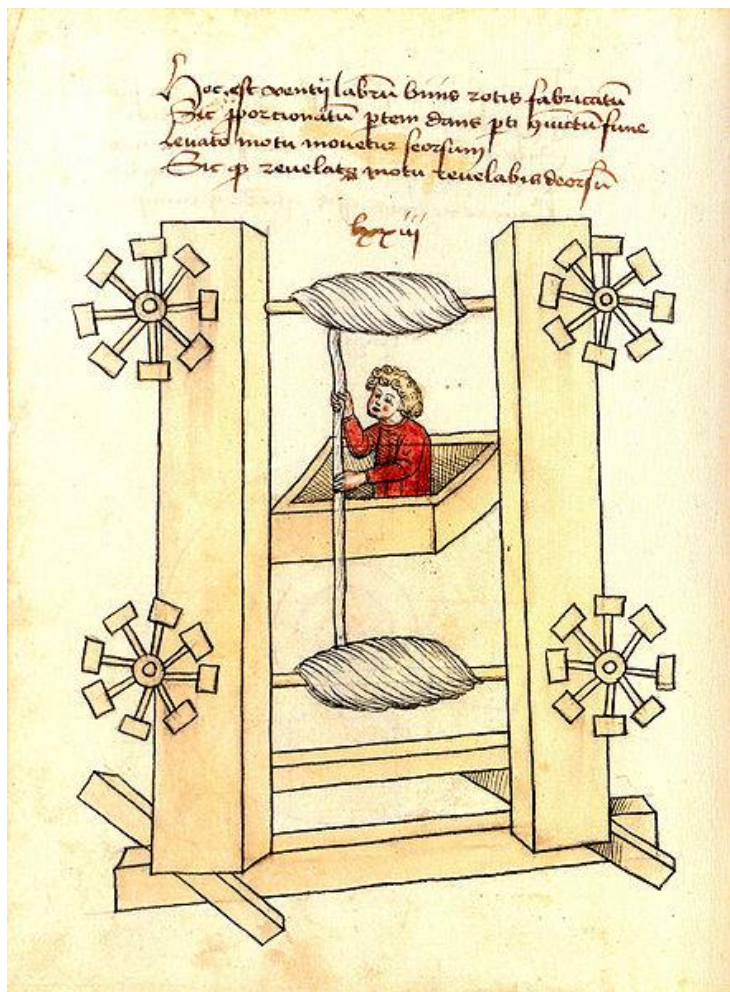 Hoc est ventilabrū binis rotis fabricatū
Sic pporcionatū ptem dans pti ꝯiūctū fune
Leuato motu mouetur seorsum
Sic ꝙ reuelatꝫ motu reuelabis deorsū
lxxiij